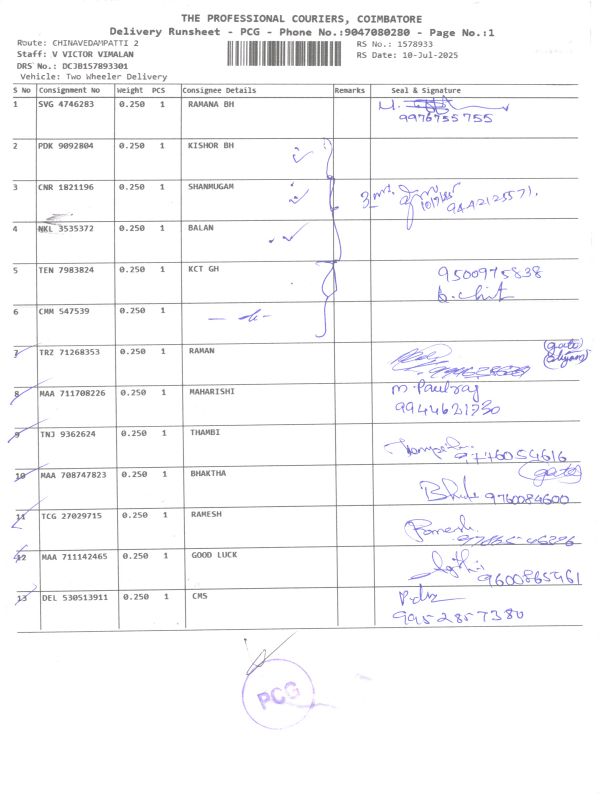 THE PROFESSIONAL COURIERS, COIMBATORE
Delivery Runsheet - PCG - Phone No.:9047080280 - Page No.:1
Route: CHINAVEDAMPATTI 2 RS No.: 1578933
Staff: V VICTOR VIMALAN RS Date: 10-Jul-2025
DRS No.: DCJB157893301
Vehicle: Two Wheeler Delivery
S No Consignment No Weight PCS Consignee Details Remarks Seal & Signature
1 SVG 4746283 0.250 1 RAMANA BH
9976755755
2 PDK 9092804 0.250 1 KISHOR BH
3 CNR 1821196 0.250 1 SHANMUGAM
4 NKL 3535372 0.250 1 BALAN
5 TEN 7983824 0.250 1 KCT GH 9500975838
6 CMM 547539 0.250 1
7 TRZ 71268353 0.250 1 RAMAN (gate)
8 MAA 711708226 0.250 1 MAHARISHI M. Paulraj
9944621730
9 TNJ 9362624 0.250 1 THAMBI
9746054616
10 MAA 708747823 0.250 1 BHAKTHA (gate)
9760084600
11 TCG 27029715 0.250 1 RAMESH Ramesh
12 MAA 711142465 0.250 1 GOOD LUCK
9600865961
13 DEL 530513911 0.250 1 CMS
9952857380
PCG